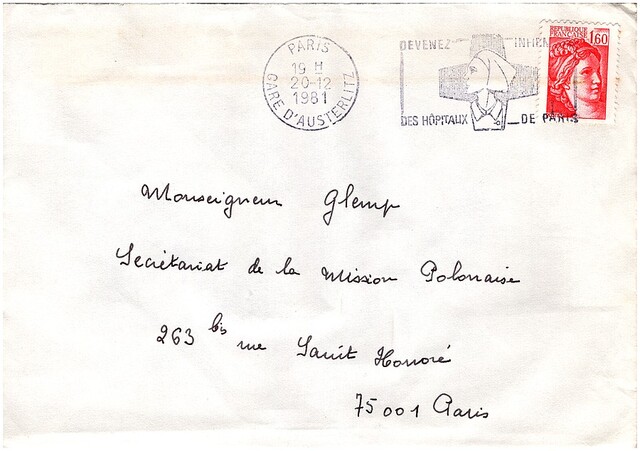 PARIS
19 H
20-12
1981
GARE D'AUSTERLITZ
DEVENEZ INFIRM
DES HÔPITAUX DE PARIS
REPUBLIQUE
FRANÇAISE
1,60
Monseigneur Glemp
Secrétariat de la Mission Polonaise
263 bis rue Saint Honoré
75001 Paris